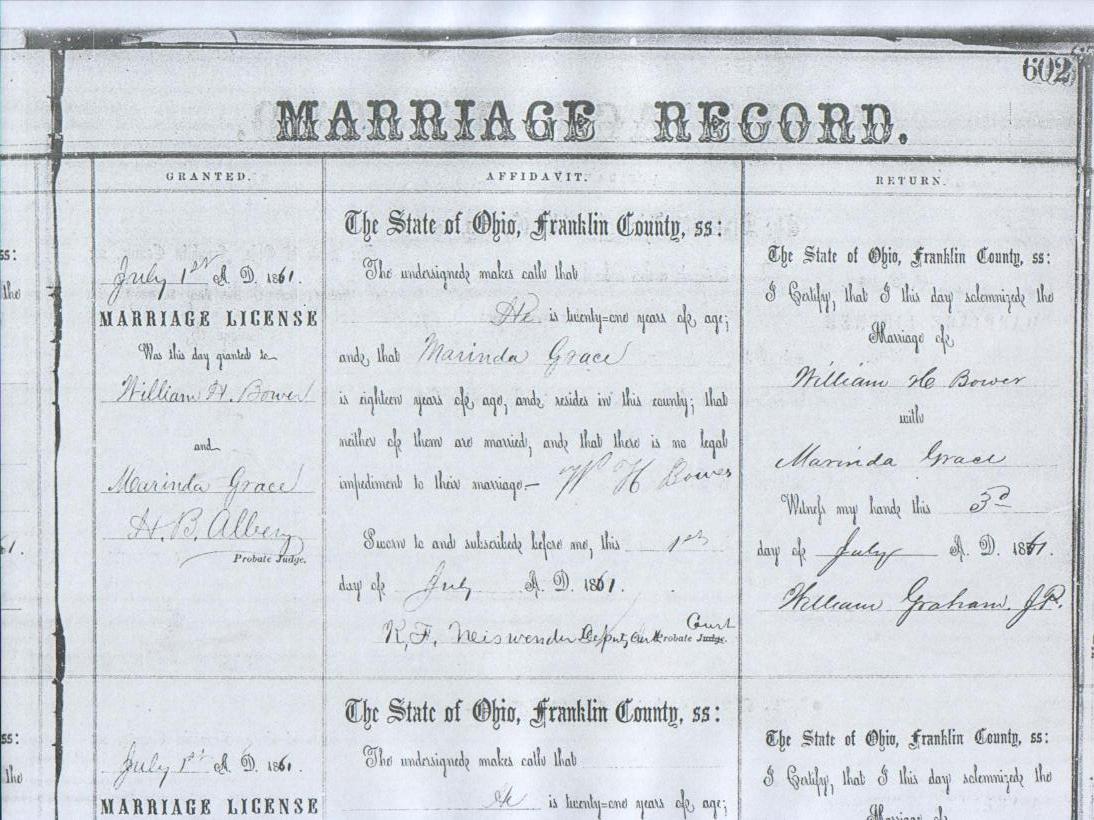 602
MARRIAGE RECORD.
GRANTED.
July 1st A. D. 1861.
MARRIAGE LICENSE
Was this day granted to
William H. Bower
and
Marinda Grace
H. B. Albery
Probate Judge.
AFFIDAVIT.
The State of Ohio, Franklin County, ss:
The undersigned makes oath that
He is twenty=one years of age;
and that Marinda Grace
is eighteen years of age, and resides in this county; that
neither of them are married, and that there is no legal
impediment to their marriage.— W H Bower
Sworn to and subscribed before me, this 1st
day of July A. D. 1861.
K. F. Neiswender Deputy Clerk Probate Judge. Court
RETURN.
The State of Ohio, Franklin County, ss:
I Certify, that I this day solemnized the
Marriage of
William H Bower
with
Marinda Grace
Witness my hand this 3d
day of July A. D. 1861.
William Graham, J.P.
July 1st A. D. 1861.
MARRIAGE LICENSE
The State of Ohio, Franklin County, ss:
The undersigned makes oath that
He is twenty=one years of age;
The State of Ohio, Franklin County, ss:
I Certify, that I this day solemnized the
Marriage of
ss:
the
61.
ss:
the